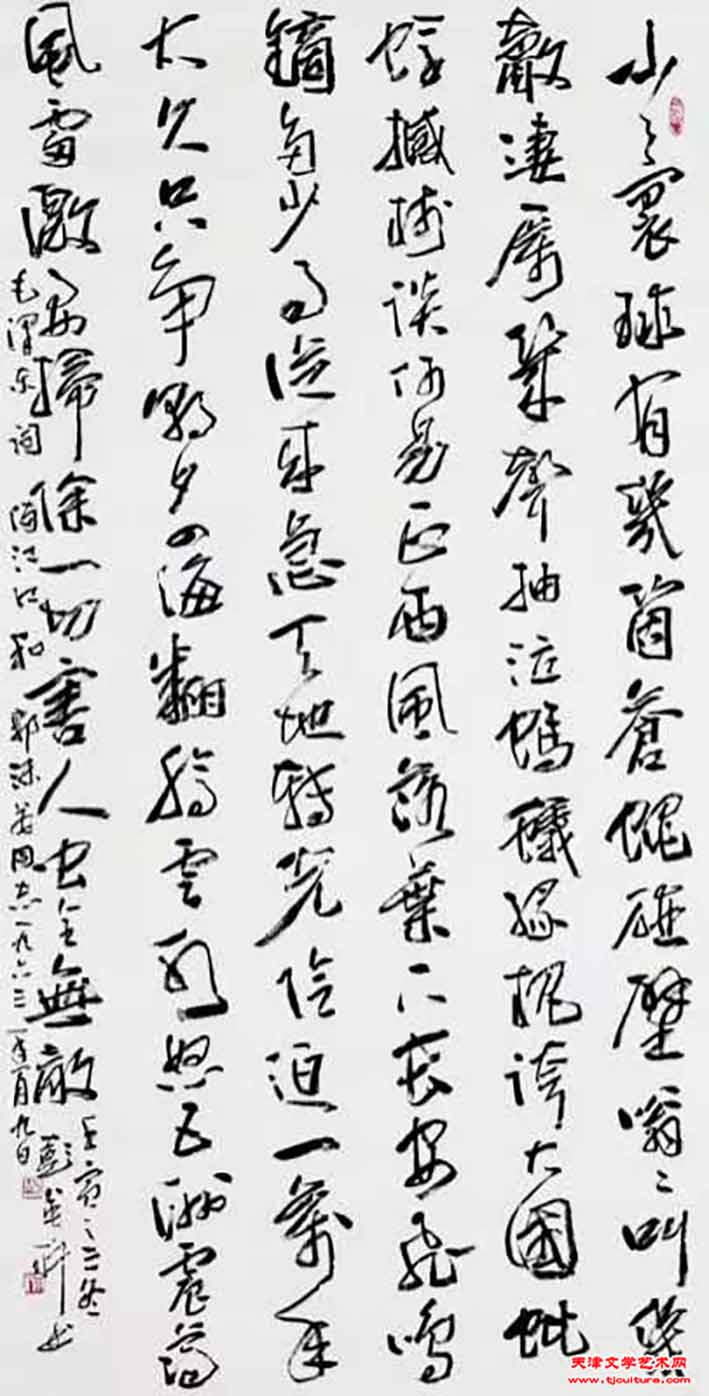 小々寰球有幾箇蒼蠅碰壁嗡々叫幾
聲凄厲幾聲抽泣螞蟻緣槐誇大國蚍
蜉撼樹談何易正西風落葉下長安飛鳴
鏑多少事從來急天地轉光陰迫一萬年
太久只爭朝夕四海翻騰雲水怒五洲震蕩
風雷激要掃除一切害人虫全無敵
毛澤东词 满江红 和郭沫若同志一九六三年一月九日
壬寅之三冬
彭英书
天津文学艺术网
www.tjculture.com